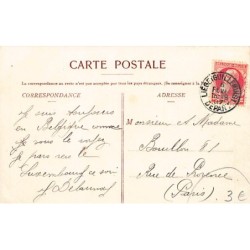 CARTE POSTALE
La correspondance au verso n'est pas acceptée par tous les pays étrangers. (Se renseigner à la
CORRESPONDANCE
ADRESSE
LIÈGE (GUILLEMINS)
DÉPART
Je suis toujours
en Belgique comme
vous le voyez
je pars vers le
Luxembourg ce soir
Monsieur et Madame
Bouillon
Rue de
(Paris)
3€